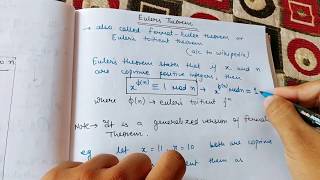 Eulers Theorem
→ also called fermat-Euler theorem or
Eulers totient theorem
(a/c to wikipedia)
Eulers theorem states that if x and n
are coprime positive integers, then
x^ϕ(n) ≡ 1 mod n → x^ϕ(n) mod n = 1
where ϕ(n) → euler totient fⁿ
Note → It is a generalized version of fermat
Theorem.
eg let x = 11, n = 10 both are coprime
them as